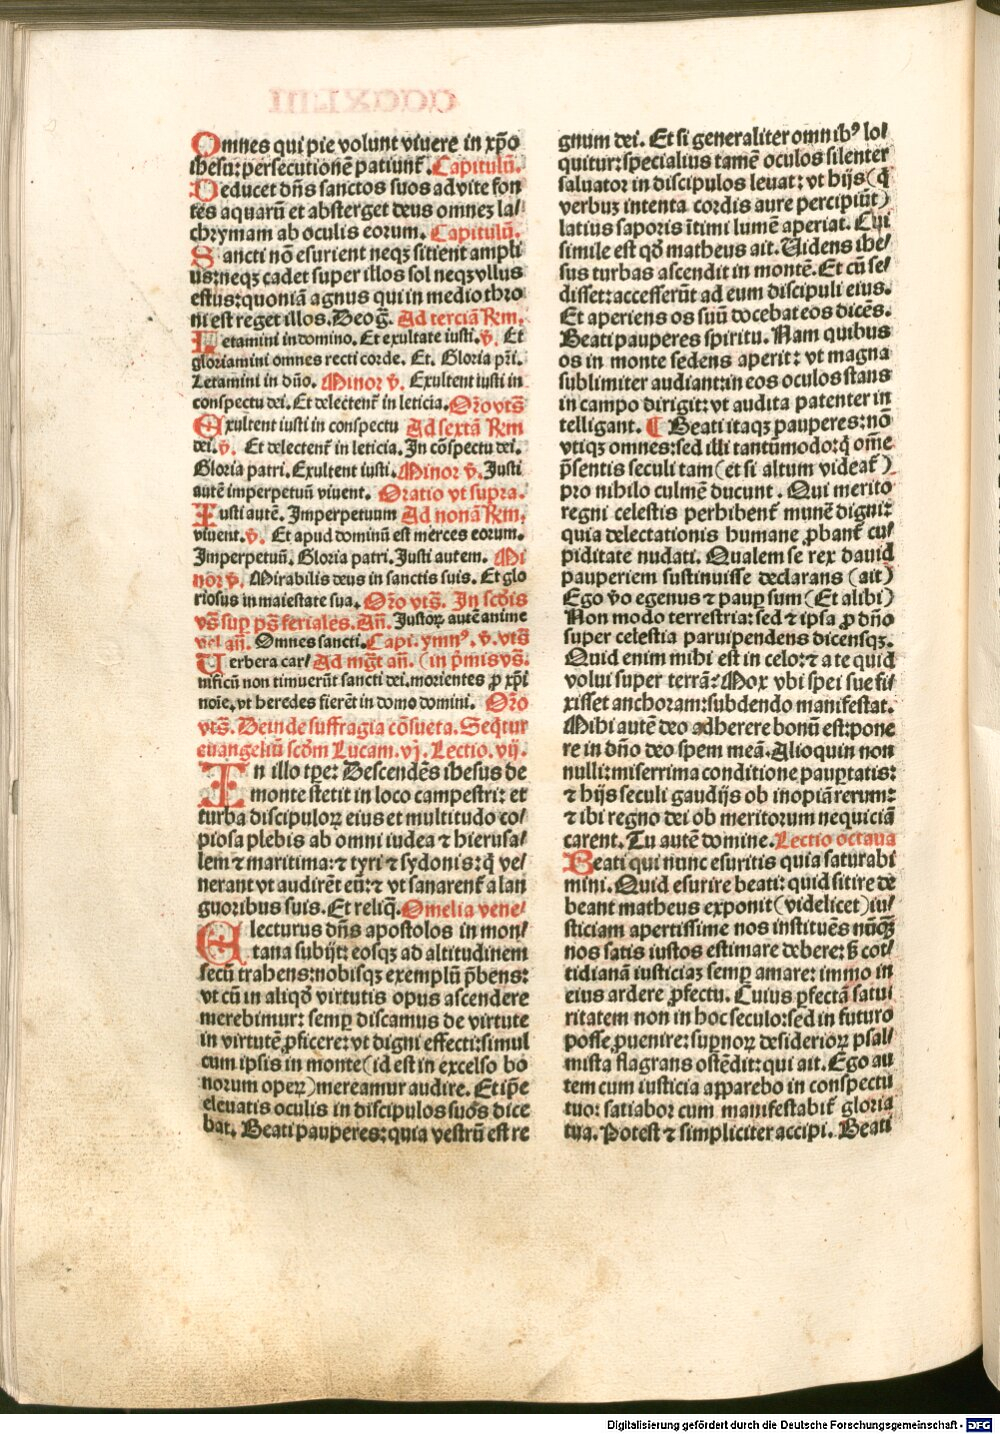 Omnes qui pie volunt viuere in xp̄o
ihesu: persecutionē patiunt᷑. Capitulū.
Deducet dn̄s sanctos suos ad vite fon
tes aquarū et absterget deus omneꝫ la/
chrymam ab oculis eorum. Capitulū.
Sancti nō esurient neqꝫ sitient ampli
us: neqꝫ cadet super illos sol neqꝫ vllus
estus: quoniā agnus qui in medio thro
ni est reget illos. Deo g̃. Ad terciā Rm̄.
Letamini in domino. Et exultate iusti. v̄. Et
gloriamini omnes recti corde. Et. Gloria p̄ri.
Letamini in dn̄o. Minor v̄. Exultent iusti in
conspectu dei. Et delectent᷑ in leticia. Or̄o vts̄
Exultent iusti in conspectu Ad sextā Rm̄
dei. v̄. Et delectent᷑ in leticia. In cōspectu dei.
Gloria patri. Exultent iusti. Minor v̄. Justi
autē imperpetuū viuent. Oratio vt supra.
Iusti autē. Imperpetuum Ad nonā Rm̄.
viuent. v̄. Et apud dominū est merces eorum.
Imperpetuū. Gloria patri. Justi autem. Mi
nor v̄. Mirabilis deus in sanctis suis. Et glo
riosus in maiestate sua. Or̄o vts̄. In sctō̄is
vs̄ sup̱ ps̄ feriales. An̄. Justoꝝ autē anime
vel an̄. Omnes sancti. Capi. ymnꝰ. v̄. vts̄
Verbera car/ Ad mg̃t an̄. (in p̄mis vs̄.
nificū non timuerūt sancti dei. morientes ꝓ xp̄i
noīe, vt heredes fierēt in domo domini. Or̄o
vts̄. Deinde suffragia cōsueta. Seq̄tur
euangeliū scd̄m Lucam. vj. Lectio. vij.
In illo tp̄e: Descendēs ihesus de
monte stetit in loco campestri: et
turba discipuloꝝ eius et multitudo co/
piosa plebis ab omni iudea ⁊ hierusa/
lem ⁊ maritima: ⁊ tyri ⁊ sydonis: q̄ ve/
nerant vt audirēt eū: ⁊ vt sanarent᷑ a lan
guoribus suis. Et reliq̄. Omelia vene/
Electurus dn̄s apostolos in mon/
tana subijt: eosqꝫ ad altitudinem
secū trahens: nobisqꝫ exemplū p̄bens:
vt cū in aliqd̄ virtutis opus ascendere
merebimur: semp̱ discamus de virtute
in virtutē ꝓficere: vt digni effecti: simul
cum ipsis in monte (id est in excelso bo
norum opeꝝ) mereamur audire. Et ip̄e
eleuatis oculis in discipulos suos dice
bat. Beati pauperes: quia vestrū est re
gnum dei. Et si generaliter omnibꝰ lo/
quitur: specialius tamē oculos silenter
saluator in discipulos leuat: vt hijs (q̄
verbuꝫ intenta cordis aure percipiūt)
latius saporis ītimi lumē aperiat. Cui
simile est qd̄ matheus ait. Videns ihe/
sus turbas ascendit in montē. Et cū se/
disset: accesserūt ad eum discipuli eius.
Et aperiens os suū docebat eos dicēs.
Beati pauperes spiritu. Nam quibus
os in monte sedens aperit: vt magna
sublimiter audiant: in eos oculos stans
in campo dirigit: vt audita patenter in
telligant. ¶ Beati itaqꝫ pauperes: nō
vtiqꝫ omnes: sed illi tantūmodo: q̄ om̄e
p̄sentis seculi tam (et si altum videat᷑)
pro nihilo culmē ducunt. Qui merito
regni celestis perhibent᷑ munē digni:
quia delectationis humane ꝓbant᷑ cu/
piditate nudati. Qualem se rex dauid
pauperiem sustinuisse declarans (ait)
Ego v̄o egenus ⁊ paup̱ sum (Et alibi)
Non modo terrestria: sed ⁊ ipsa ꝓ dn̄o
super celestia paruipendens dicensqꝫ.
Quid enim mihi est in celo: ⁊ a te quid
volui super terrā? Mox vbi spei sue fi/
xisset anchoram: subdendo manifestat.
Mihi autē deo adherere bonū est: pone
re in dn̄o deo spem meā. Alioquin non
nulli: miserrima conditione paup̱tatis:
⁊ hijs seculi gaudijs ob inopiā rerum:
⁊ ibi regno dei ob meritorum nequiciā
carent. Tu autē domine. Lectio octaua
Beati qui nunc esuritis quia saturabi
mini. Quid esurire beati: quid sitire de
beant matheus exponit (videlicet) iu/
sticiam apertissime nos instituēs nūq̄ꝫ
nos satis iustos estimare debere: s̄ cot/
tidianā iusticiaꝫ semp̱ amare: immo in
eius ardere ꝓfectu. Cuius ꝑfectā satu
ritatem non in hoc seculo: sed in futuro
posse ꝓuenire: supnoꝝ desiderioꝝ psal/
mista flagrans ostēdit: qui ait. Ego au
tem cum iusticia apparebo in conspectu
tuo: satiabor cum manifestabit᷑ gloria
tua. Potest ⁊ simpliciter accipi. Beati
Digitalisierung gefördert durch die Deutsche Forschungsgemeinschaft - DFG